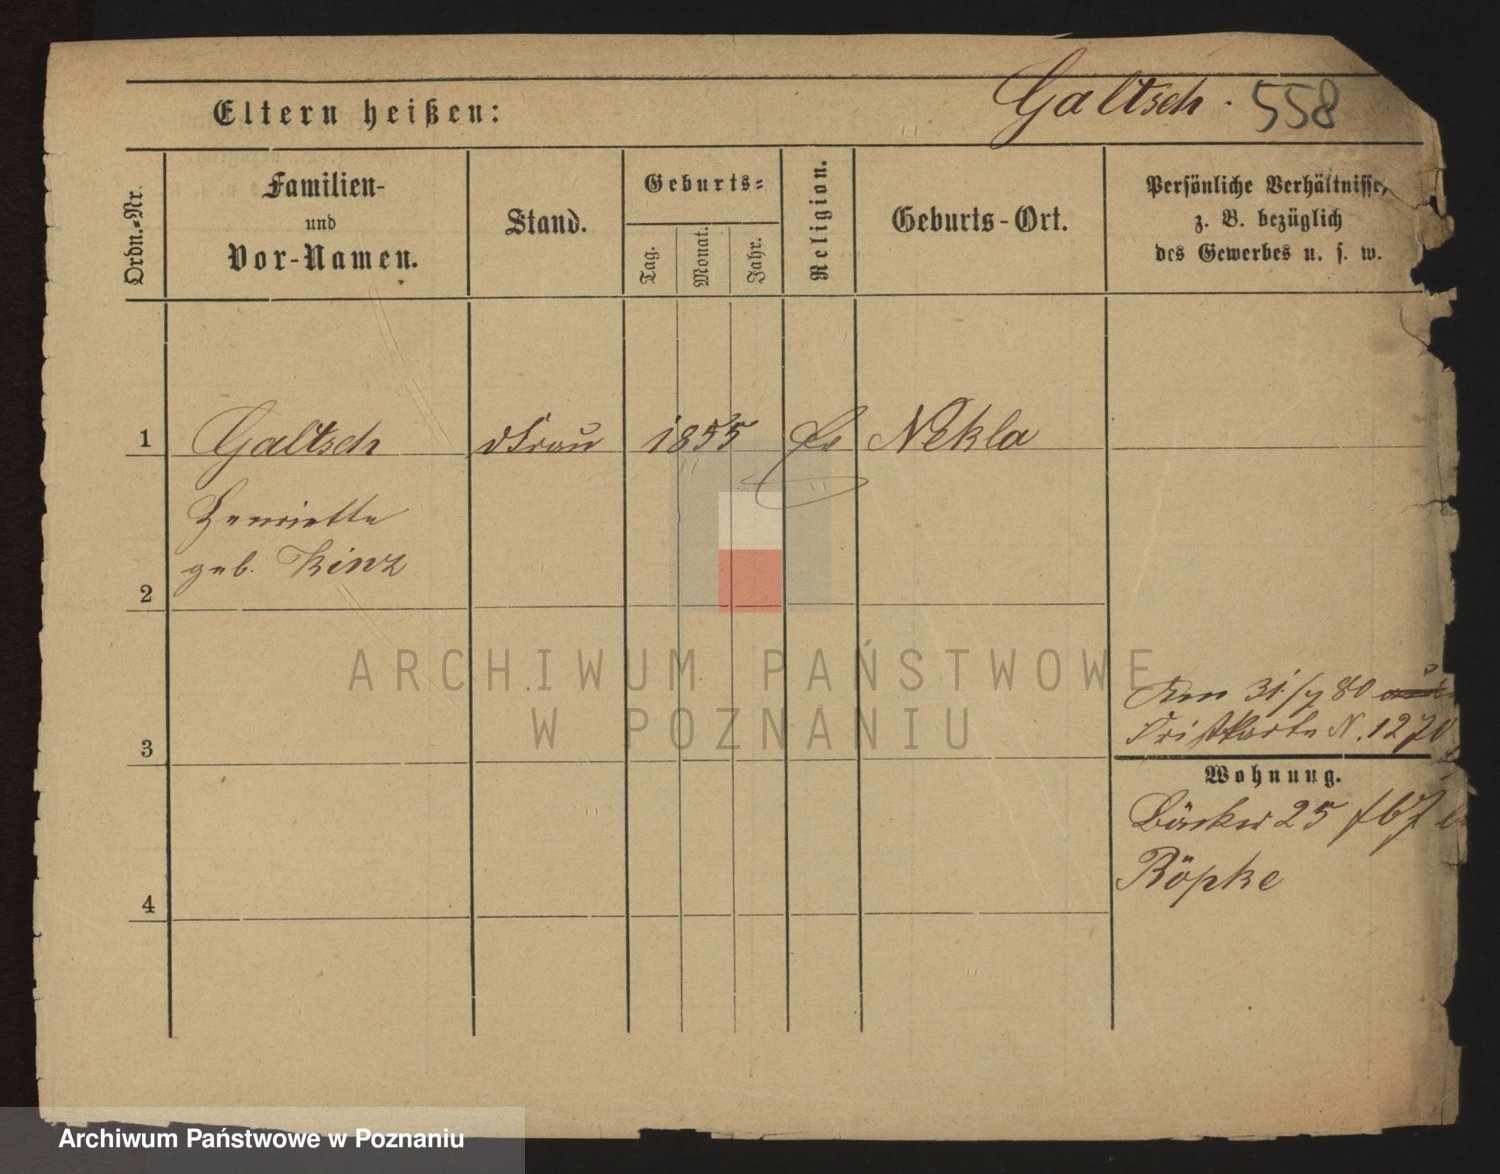 Galtsch. 558
Eltern heißen:
Ordn.-Nr.
Familien-
und
Vor-Namen.
Stand.
Geburts-
Tag.
Monat.
Jahr.
Religion.
Geburts-Ort.
Persönliche Verhältnisse,
z. B. bezüglich
des Gewerbes u. s. w.
1 Galtsch Frau 1855 Ev Nekla
Henriette
geb. Kinz
2
3
4
31/7 80
N. 1270
Wohnung.
Bäcker 25
Röpke
ARCHIWUM PAŃSTWOWE
W POZNANIU
Archiwum Państwowe w Poznaniu